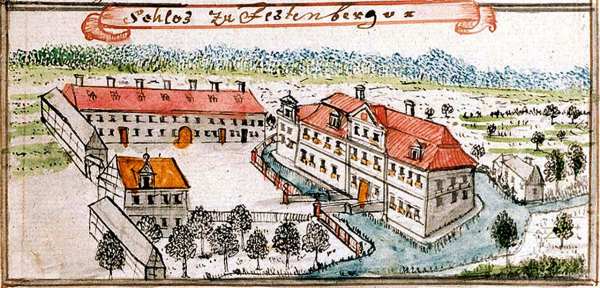 Schlos zu Festenberg vx